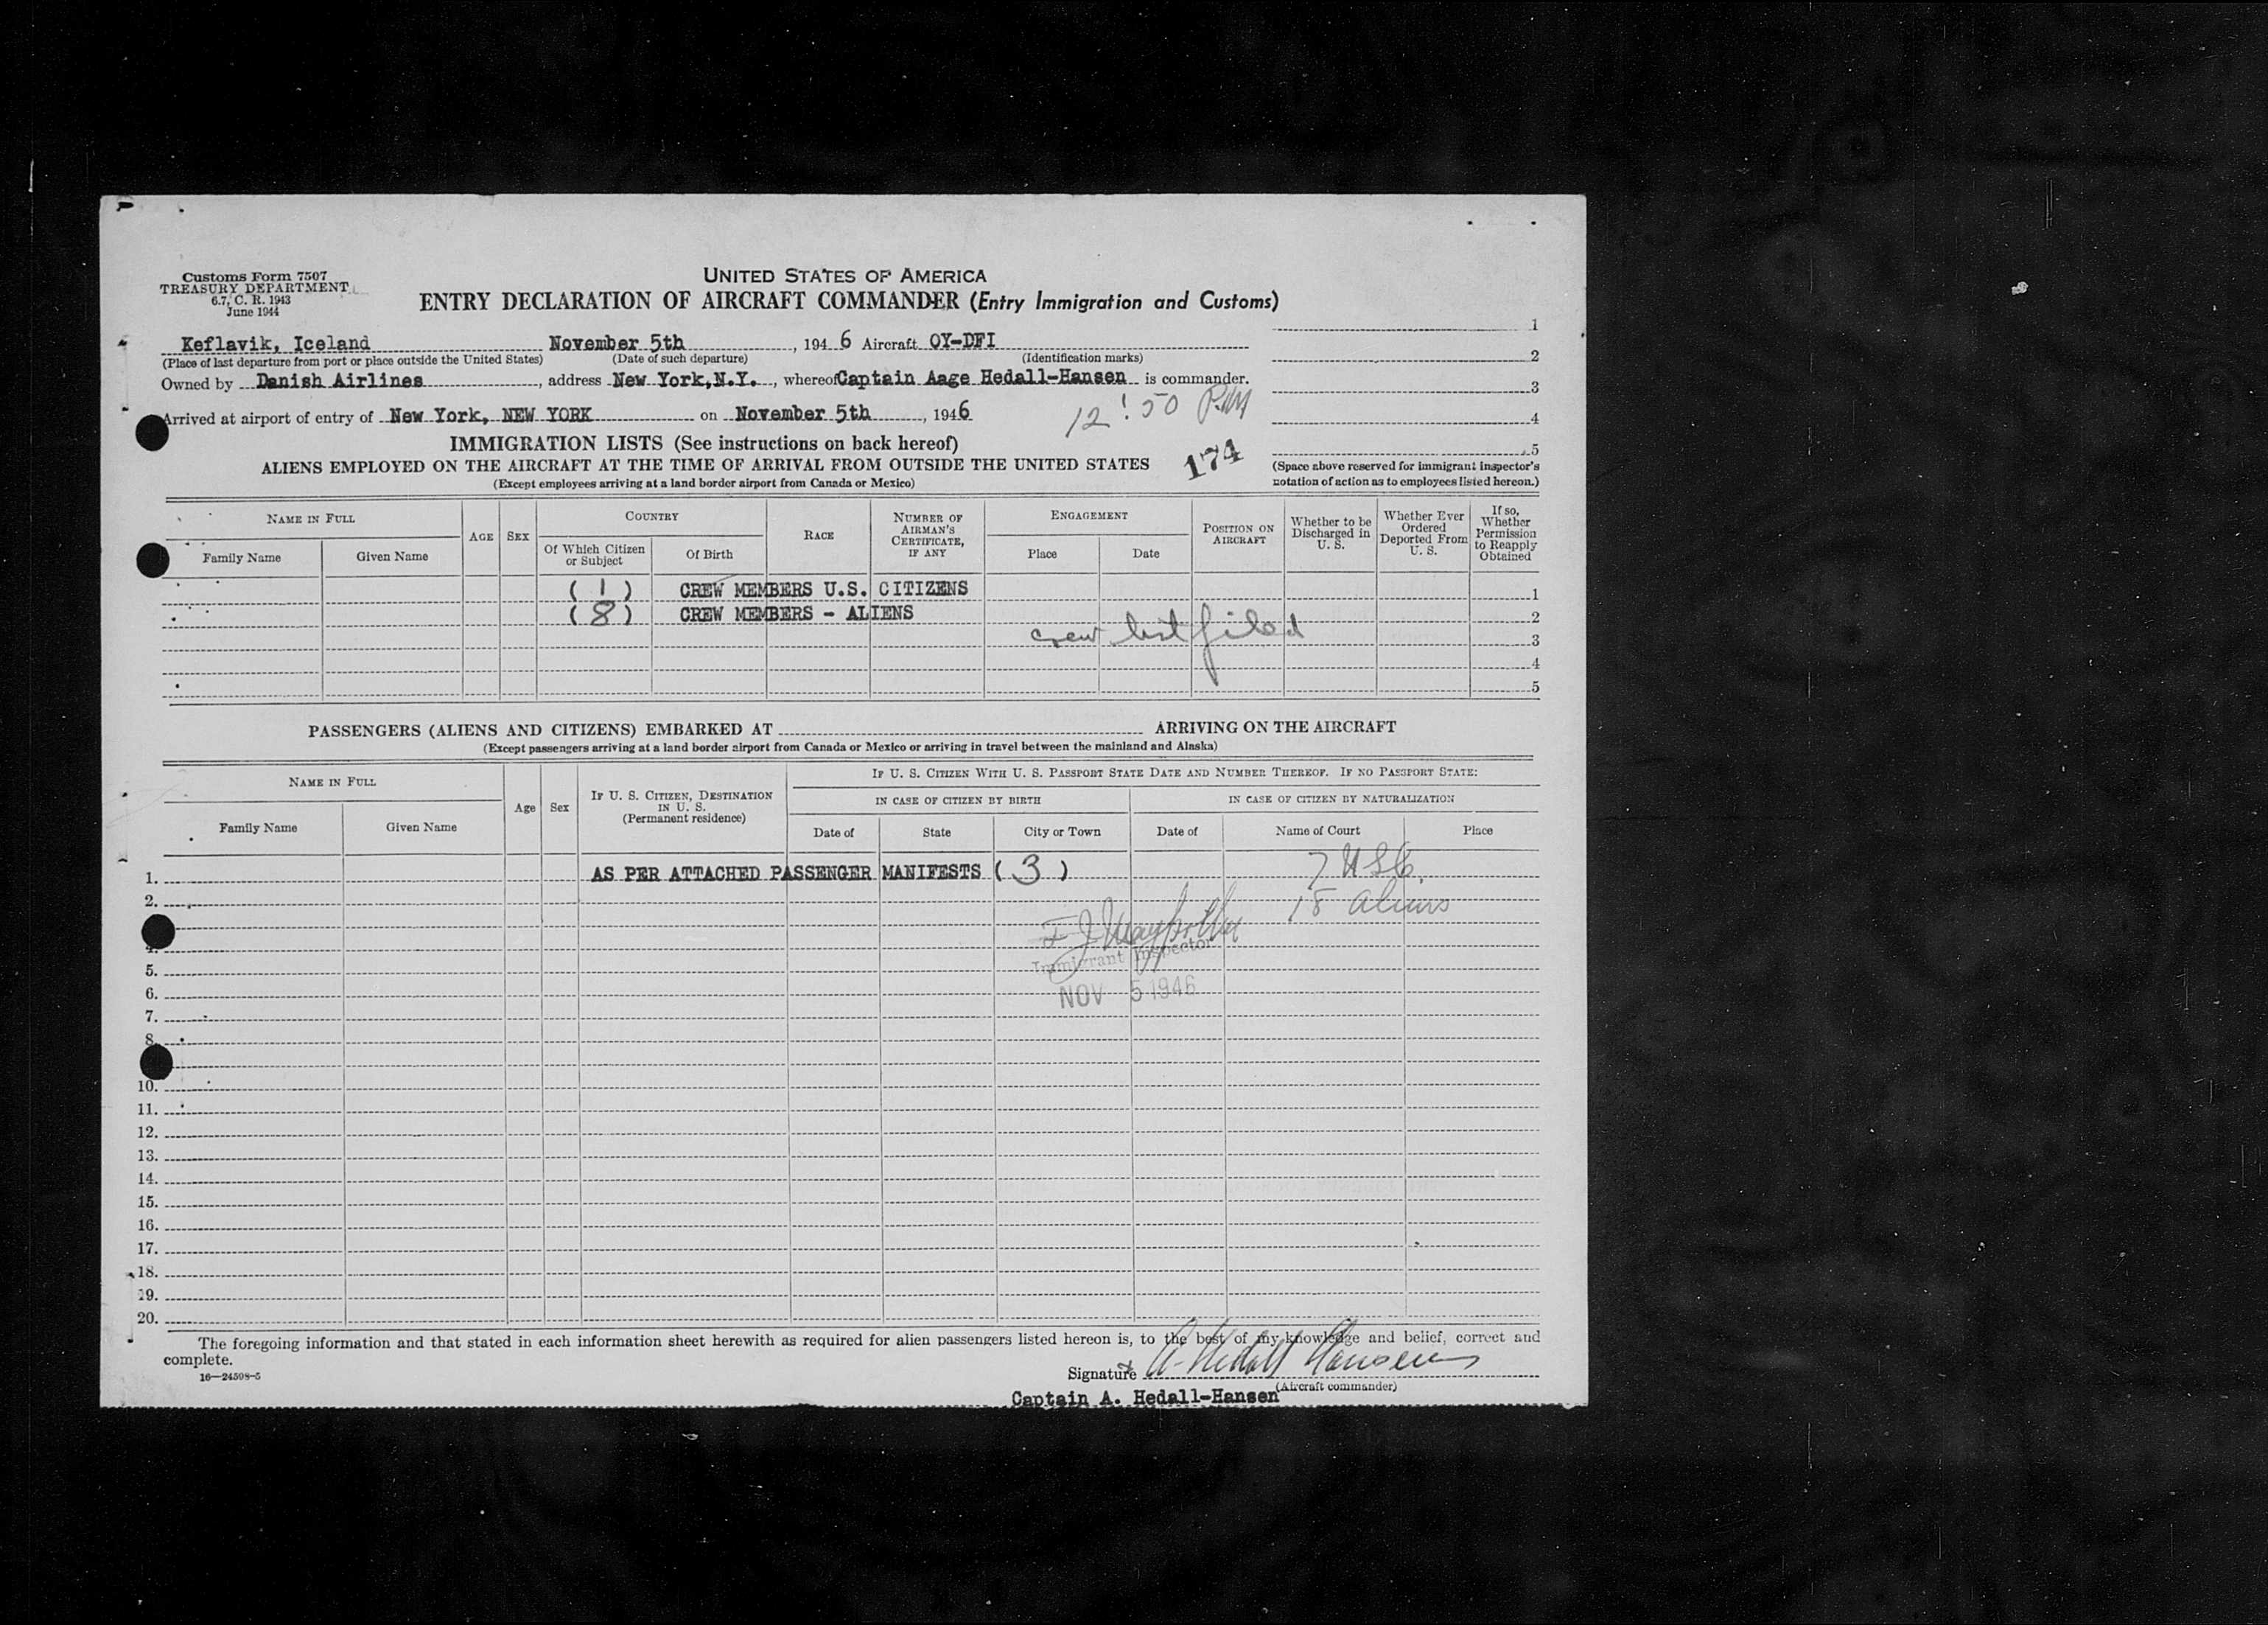 Customs Form 7507
TREASURY DEPARTMENT
6.7, C. R. 1943
June 1944
UNITED STATES OF AMERICA
ENTRY DECLARATION OF AIRCRAFT COMMANDER (Entry Immigration and Customs)
Keflavik, Iceland November 5th, 1946 Aircraft OY-DFI
(Place of last departure from port or place outside the United States) (Date of such departure) (Identification marks)
Owned by Danish Airlines, address New York, N.Y., whereof Captain Aage Hedall-Hansen is commander.
Arrived at airport of entry of New York, NEW YORK on November 5th, 1946
12:50 P.M
1
2
3
4
5
(Space above reserved for immigrant inspector's notation of action as to employees listed hereon.)
IMMIGRATION LISTS (See instructions on back hereof)
ALIENS EMPLOYED ON THE AIRCRAFT AT THE TIME OF ARRIVAL FROM OUTSIDE THE UNITED STATES
174
(Except employees arriving at a land border airport from Canada or Mexico)
NAME IN FULL
Family Name Given Name
AGE SEX
COUNTRY
Of Which Citizen or Subject Of Birth
RACE
NUMBER OF AIRMAN'S CERTIFICATE, IF ANY
ENGAGEMENT
Place Date
POSITION ON AIRCRAFT
Whether to be Discharged in U. S.
Whether Ever Ordered Deported From U. S.
If so, Whether Permission to Reapply Obtained
(1) CREW MEMBERS U.S. CITIZENS 1
(8) CREW MEMBERS - ALIENS 2
crew list filed 3
4
5
PASSENGERS (ALIENS AND CITIZENS) EMBARKED AT ARRIVING ON THE AIRCRAFT
(Except passengers arriving at a land border airport from Canada or Mexico or arriving in travel between the mainland and Alaska)
NAME IN FULL
Family Name Given Name
Age Sex
IF U. S. CITIZEN, DESTINATION IN U. S.
(Permanent residence)
IF U. S. CITIZEN WITH U. S. PASSPORT STATE DATE AND NUMBER THEREOF. IF NO PASSPORT STATE:
IN CASE OF CITIZEN BY BIRTH IN CASE OF CITIZEN BY NATURALIZATION
Date of State City or Town Date of Name of Court Place
1. AS PER ATTACHED PASSENGER MANIFESTS (3) 7 USC.
2. 18 Aliens
4.
Immigrant Inspector
5.
6. NOV 5 1946
7.
8.
10.
11.
12.
13.
14.
15.
16.
17.
18.
19.
20.
The foregoing information and that stated in each information sheet herewith as required for alien passengers listed hereon is, to the best of my knowledge and belief, correct and
complete.
16—24598-5
Signature A. Hedall Hansen
(Aircraft commander)
Captain A. Hedall-Hansen